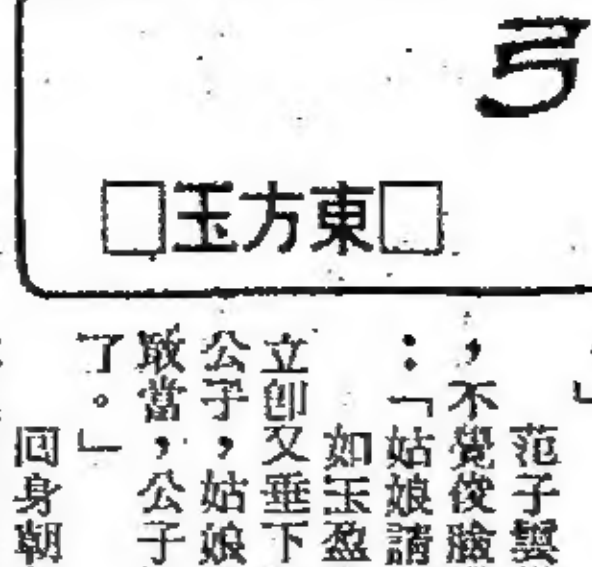 弓
□東方玉□
」
范子雲
，不覺俊臉
：「姑娘請
如玉盈
立卽又垂下
公子，姑娘
敢當，公子
了。」
回身朝